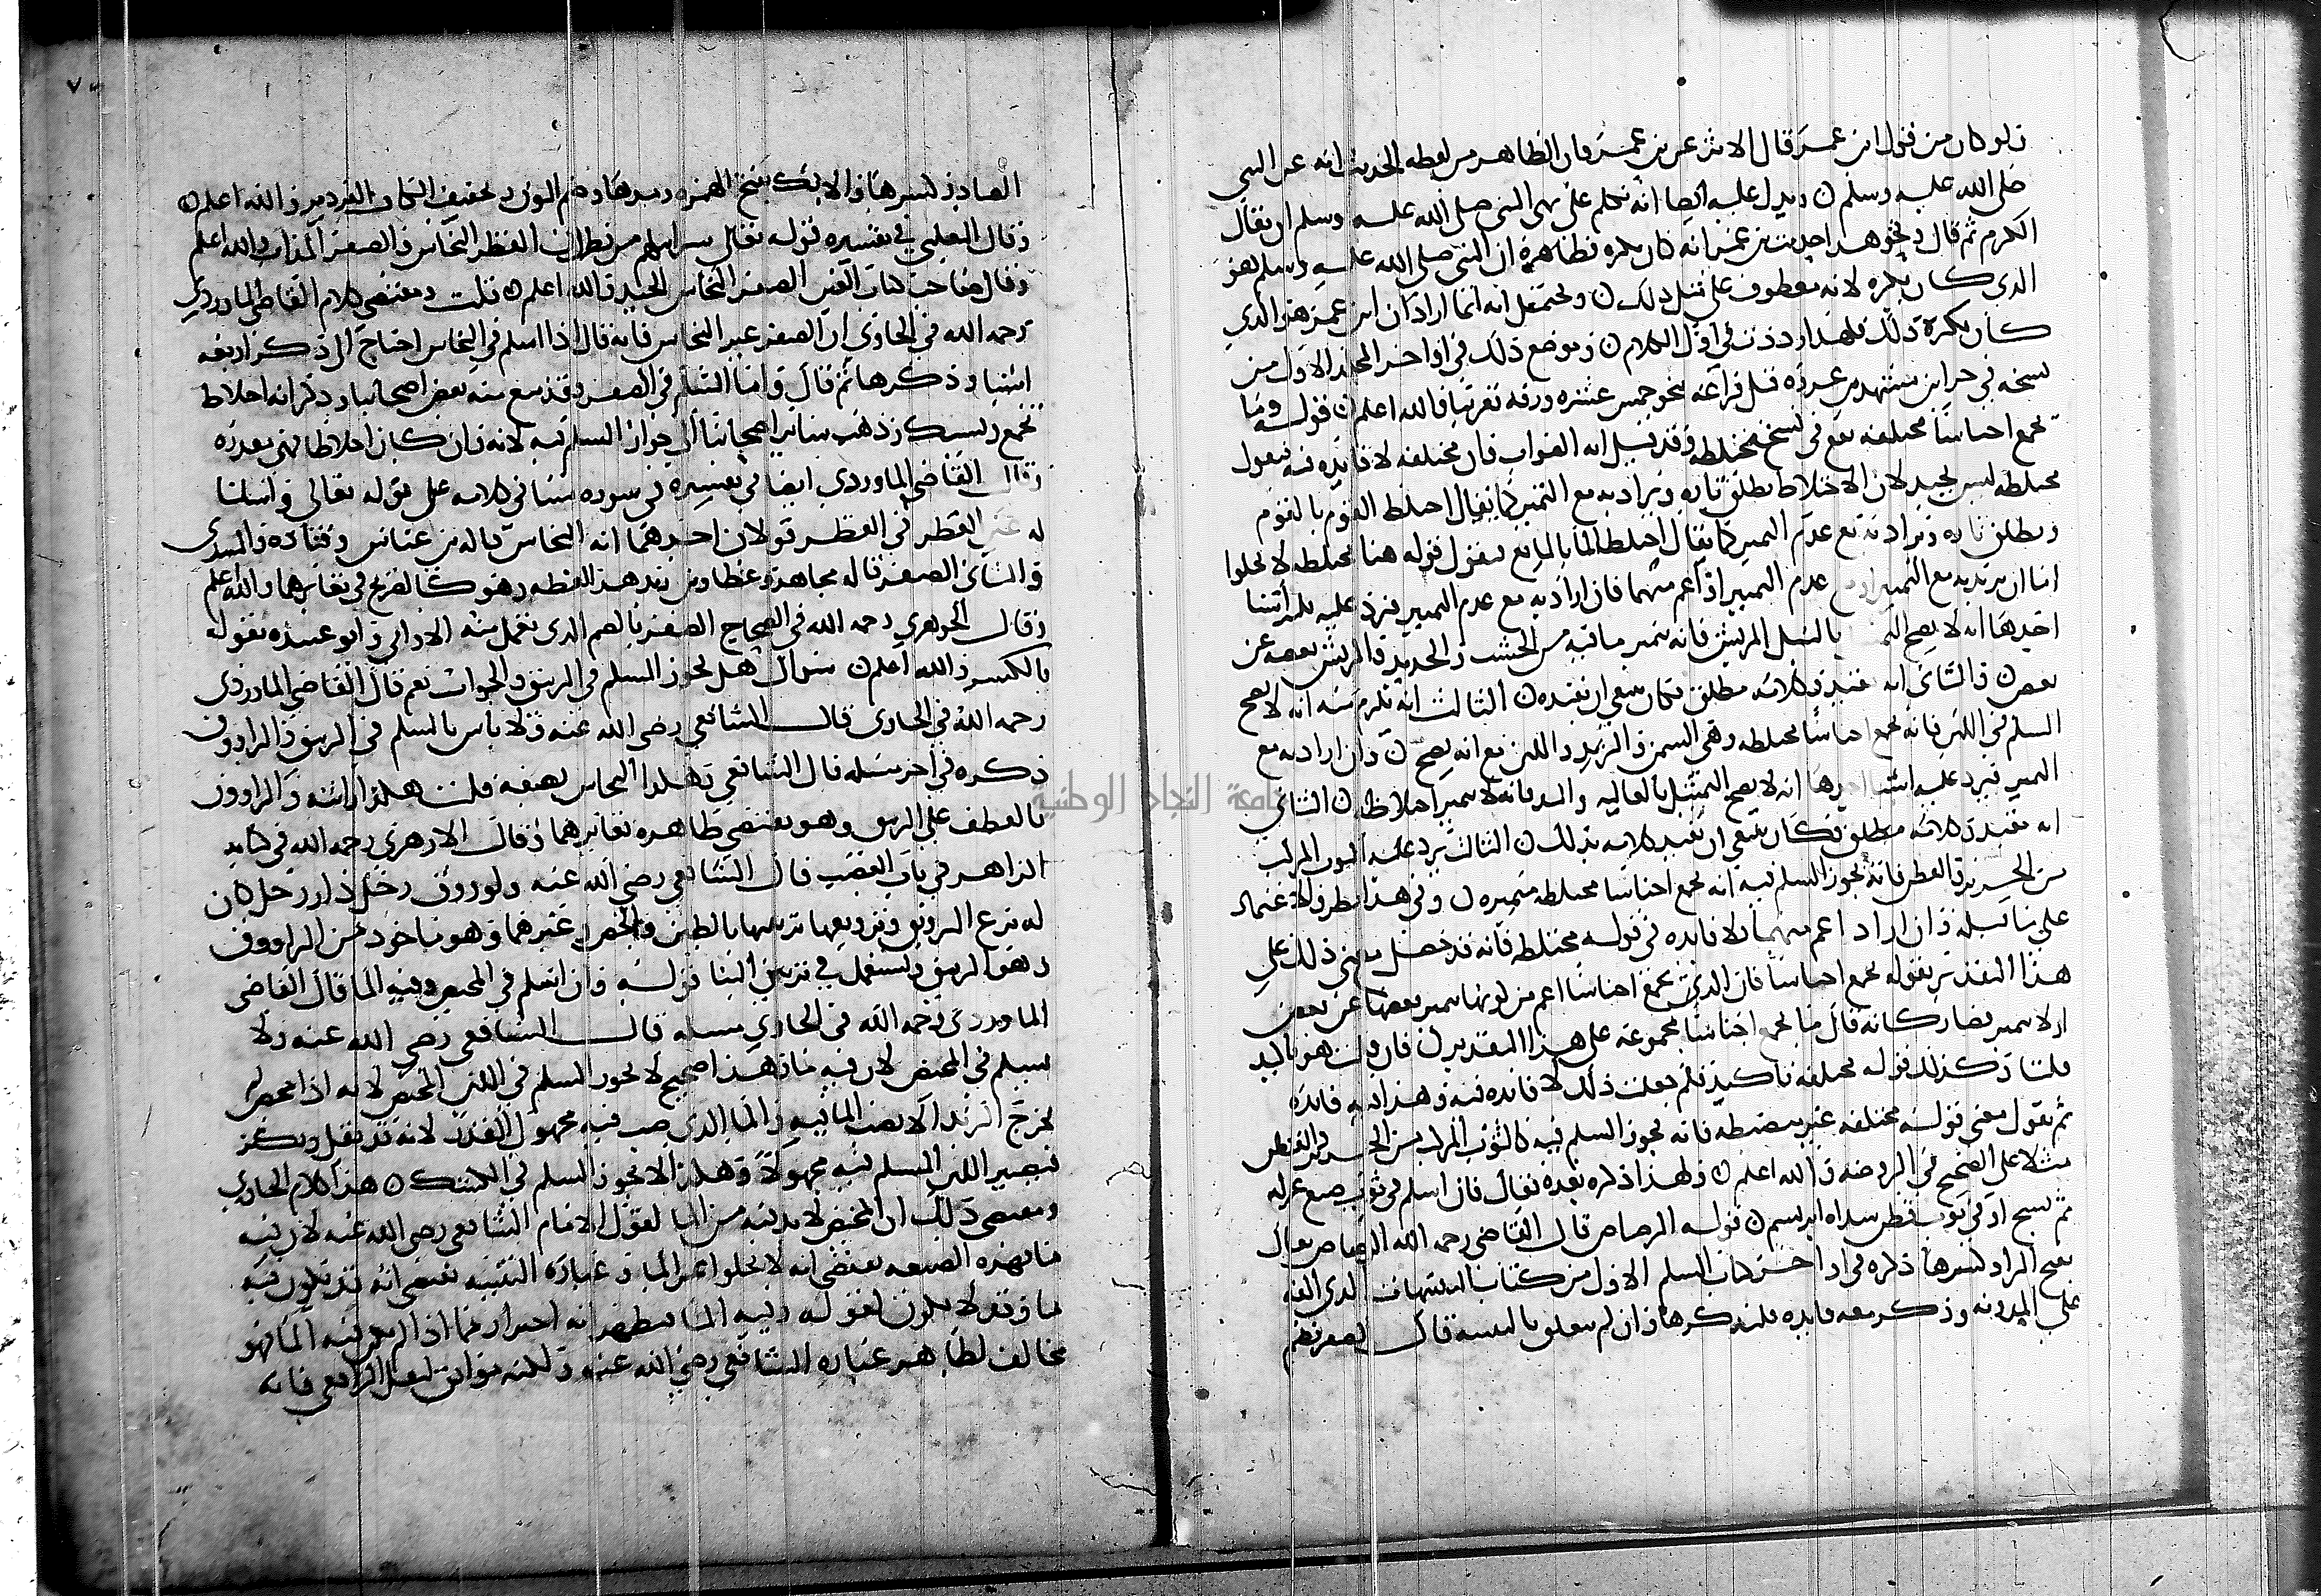 ولو كان من قول ابن عمر قال الاثر عن بن عمر فان الظاهر من لفظه الحديث انه عن النبي
صلى الله عليه وسلم ويدل عليه ايضا انه تكلم على نهى النبي صلى الله عليه وسلم ان يقال
الكرم ثم قال ونحو هذا حديث بن عمر انه كان يكره فظاهره ان النبي صلى الله عليه وسلم هو
الذي كان يكره لانه معطوف على مثل ذلك ويحتمل انه انما اراد ان ابن عمر هو الذي
كان يكره ذلك فلهذا رددت في اول الكلام وموضع ذلك في اواخر المجلد الاول من
نسخه في قبل نحو خمس عشره ورقه تقريبا والله اعلم قوله وما
يجمع اجناسا مختلفه يقع في نسخ مختلطه وقد قيل انه الصواب فان مختلفه لا فايده فيه فنقول
مختلطه ليس بجيد لان الاختلاط يطلق تاره ويراد به مع التمييز كما يقال اختلط القوم بالقوم
ويطلق تاره ويراد به مع عدم التمييز كما يقال اختلط الما بالمايع فنقول قوله هنا مختلطه لا يخلوا
اما ان يريد به مع التمييز او مع عدم التمييز او اعم منهما فان اراد به مع عدم التمييز فيرد عليه ثلاثه اشيا
احدها انه لا يصح بالنبل المريش فانه يتميز ما فيه من الخشب والحديد والريش بعضه عن
بعض والثاني انه تقييد وكلامه مطلق فكان ينبغي ان يقيده الثالث انه يلزم منه انه لا يصح
السلم في اللبن فانه يجمع اجناسا مختلطه وهي السمن والزبد واللبن مع انه يصح وان اراد به مع
التمييز فيرد عليه اشيا احدها انه لا يصح التمثيل بالغاليه والند فانه لا يتميز اخلاطه الثاني
انه تقييد وكلامه مطلق وكان ينبغي ان يقيد كلامه بذلك الثالث يرد عليه الثوب المركب
من الحرير والقطن فانه يجوز السلم فيه مع انه يجمع اجناسا مختلطه متميزه وفي هذا نظر ولا اعتماد
على ما قبله وان اراد اعم منهما فلا فايده في قوله مختلطه فانه قد حصل معنى ذلك على
هذا التقدير بقوله يجمع اجناسا فان الذي يجمع اجناسا اعم من كونها يتميز بعضها عن بعض
او لا يتميز فصار كانه قال ما يجمع اجناسا مجموعه على هذا التقدير فان قيل هو تاكيد
قلنا وكذلك قوله مختلفه تاكيد فلم جعلت ذلك لا فايده فيه وهذا فيه فايده
ثم نقول معنى قوله مختلفه غير منضبطه فانه يجوز السلم فيه كالثوب المركب من الحرير والقطن
مثلا على الصحيح في الروضه والله اعلم ولهذا ذكره بعده فقال فان اسلم في ثوب صبغ غزله
ثم نسج او في ثوب قطن سداه ابريسم قوله الرصاص قال القاضي رحمه الله الرصاص يقال
بفتح الراء وكسرها ذكره في اواخر كتاب السلم الاول من كتاب التنبيهات الذي الفه
على المدونه وذكر معه فايده فلنذكرها وان لم يتعلق بالتنبيه قال الصفر بضم
الصاد وكسرها والانك بفتح الهمزه ومدها وضم النون وتخفيف الكاف القزدير والله اعلم
وقال الثعلبي في تفسيره قوله تعالى سرابيلهم من قطران القطر النحاس والصفر المذاب والله اعلم
وقال صاحب كتاب العين الصفر النحاس الجيد والله اعلم قلت ومقتضى كلام القاضي الماوردي
رحمه الله في الحاوي ان الصفر غير النحاس فانه قال اذا اسلم في النحاس احتاج الى ذكر اربعه
اشيا وذكرها ثم قال واما السلم في الصفر وقد منع منه بعض اصحابنا وذكر انه اخلاط
تجمع وتسبك وذهب سائر اصحابنا الى جواز السلم فيه لانه وان كان اخلاطا فهي بعده
وقال القاضي الماوردي ايضا في تفسيره في سوره سبا في كلامه على قوله تعالى واسلنا
له عين القطر في القطر قولان احدهما انه النحاس قاله بن عباس وقتاده والسدي
والثاني الصفر قاله مجاهد وعطا هذا لفظه وهو كالصريح في تغايرهما والله اعلم
وقال الجوهري رحمه الله في الصحاح الصفر بالضم الذي تعمل منه الاواني وابو عبيده يقوله
بالكسر والله اعلم سوال هل يجوز السلم في الزيبق والجواب نعم قال القاضي الماوردي
رحمه الله في الحاوي قال الشافعي رضي الله عنه ولا باس بالسلم في الزيبق والراووق
ذكره في اخر مسله قال الشافعي وهكذا النحاس يصفه قلت هكذا رايته والراووق
بالعطف على الزيبق وهو يقتضي ظاهره تغايرهما وقال الازهري رحمه الله في كتابه
الزاهر في باب الغصب قال الشافعي رضي الله عنه ولو زوق رجل دار رجل كان
له نزع التزويق وتزويقها تزيينها بالطين والجص وغيرهما وهو ماخوذ من الزاووق
وهو الزيبق ويستعمل في تزيين البنا قوله وان اسلم في المخيض وفيه الما قال القاضي
الماوردي رحمه الله في الحاوي مسله قال الشافعي رضي الله عنه ولا
يسلم في المخيض لان فيه ما وهذا صحيح لا يجوز السلم في اللبن المخيض لانه اذا مخض
لم يخرج الزبد الا بصب الما فيه والما الذي صب فيه مجهول القدر لانه قد يقل ويكثر
فيصير اللبن المسلم فيه مجهولا وهكذا لا يجوز السلم في الكشك هذا كلام الحاوي
ومقتضى ذلك ان المخيض لا بد فيه من الما لقول الامام الشافعي رضي الله عنه لان فيه
ما فهذه الصيغه تقتضي انه لا يخلوا عن الما وعباره التنبيه تقتضي انه قد يكون فيه
ما وقد لا يكون لقوله وفيه الما فيظهر انه احتراز مما اذا لم يكن فيه الما فهو
مخالف لظاهر عباره الشافعي رضي الله عنه ولكنه موافق لنقل الرافعي فانه